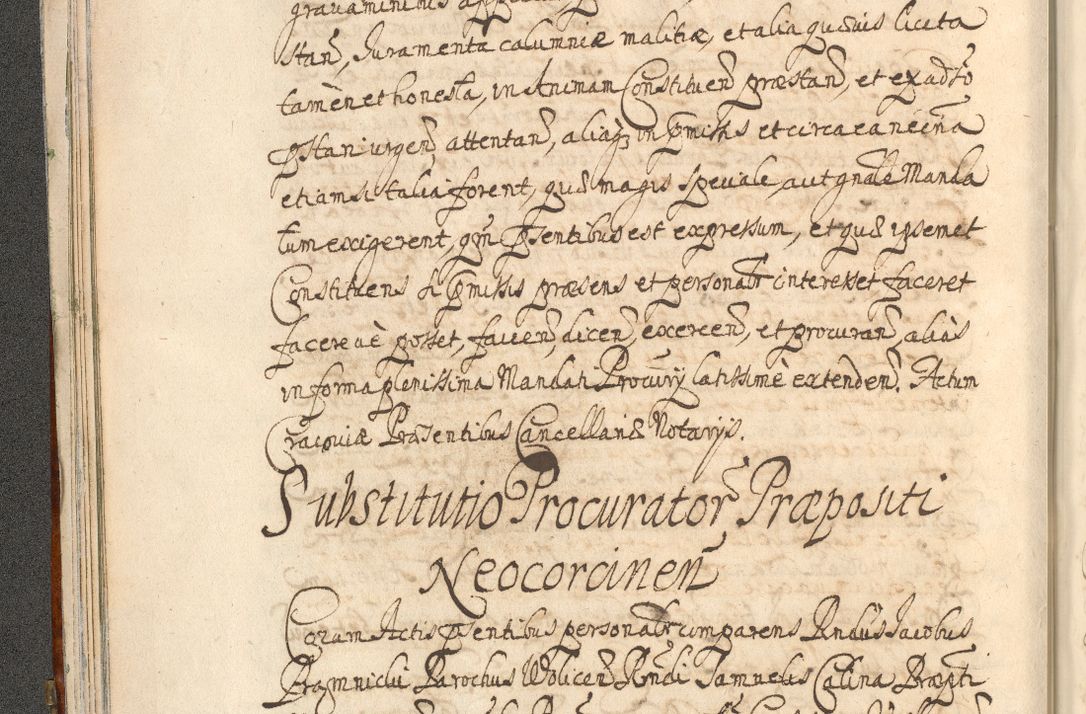 gravaminibus
stañ, Juramenta calumniæ malitiæ, et alia quævis licita
tamèn et honesta, in Animam Constituen̄ præstan̄, et ex adv̄so
p̄stari urgen̄, attentan̄, aliaq₃ in p̄missis et circa ea necn̄a
etiamsi talia forent, quæ magis speciale, aut gn̄ale Manda
tum exigerent, qm̄ p̄sentibus est expressum, et quæ ipsemet
Constituens si p̄missis præsens et personalr̄ interesset faceret
facerevè posset, facien̄, dicen̄, exercen̄, et procuran̄, aliàs
in forma plenissima Mandati Procurij latissimè extenden̄. Actum
Cracoviæ Præsentibus Cancellariæ Notarijs.
Substitutio Procurator̄ Præpositi
Neocorcinen̄
Coram Actis p̄sentibus personalr̄ comparens Rn̄dus Jacobus
Bramnicki Parochus Wolicen̄ Rn̄di Samuelis Calina Præp̄ti